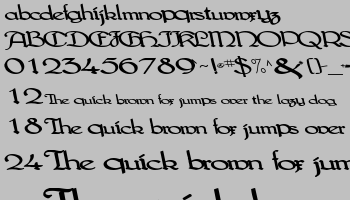 abcdefghijklmnopqrstuvwxyz
ABCDEFGHIJKLMNOPQRS
0123456789
12 The quick brown fox jumps over the lazy dog
18 The quick brown fox jumps over
24 The quick brown fox jum